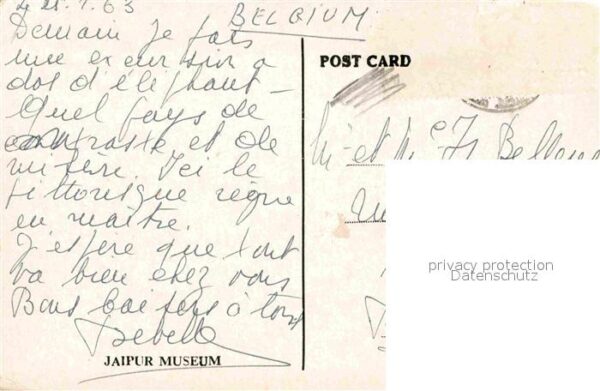 BELGIUM
Demain je fais
une excursion à
dos d'éléphant –
Quel pays de
contraste et de
misère. Ici le
pittoresque règne
en maître.
J'espère que tout
va bien chez vous
Bons baisers à tous
JAIPUR MUSEUM
POST CARD
privacy protection
Datenschutz